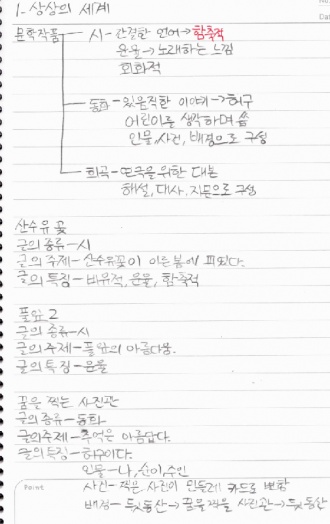 1. 상상의 세계
문학작품 시 - 간결한 언어→함축적
운율→노래하는 느낌
회화적
동화 - 있음직한 이야기→허구
어린이를 생각하며 씀
인물, 사건, 배경으로 구성
희곡 - 연극을 위한 대본
해설, 대사, 지문으로 구성
산수유 꽃
글의 종류 - 시
글의 주제 - 산수유꽃이 이른 봄에 피었다.
글의 특징 - 비유적, 운율, 함축적
풀잎 2
글의 종류 - 시
글의 주제 - 풀잎의 아름다움.
글의 특징 - 운율
꿈을 찍는 사진관
글의 종류 - 동화
글의 주제 - 추억은 아름답다.
글의 특징 - 허구이다.
인물 - 나, 순이,
사건 - 찍은 사진이 민들레 카드로 변함
Point
배경 - 뒷동산→꿈을 찍는 사진관→뒷동산